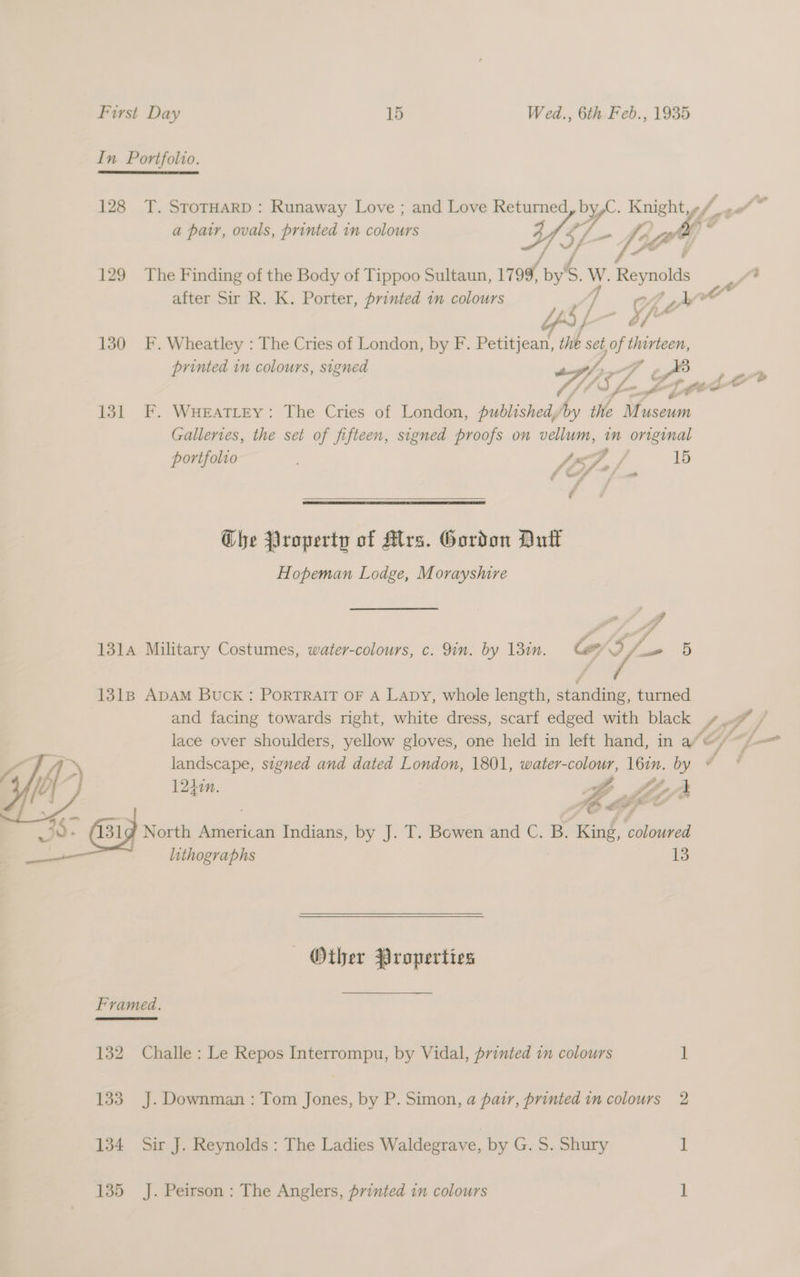 First Day 15 Wed., 6th Feb., 1935
In Portfolio.
128 T. STOTHARD : Runaway Love ; and Love Returned, by C. Knight,
a pair, ovals, printed in colours
129 The Finding of the Body of Tippoo Sultaun, 1799, by S. W. Reynolds
after Sir R. K. Porter, printed in colours
130 F. Wheatley : The Cries of London, by F. Petitjean, the set of thirteen,
printed in colours, signed 13
131 F. WHEATLEY : The Cries of London, published by the Museum
Galleries, the set of fifteen, signed proofs on vellum, in original
portfolio 15
The Property of Mrs. Gordon Duff
Hopeman Lodge, Morayshire
131A Military Costumes, water-colours, c. 9in. by 13in. 5
131B ADAM BUCK : PORTRAIT OF A LADY, whole length, standing, turned
and facing towards right, white dress, scarf edged with black
lace over shoulders, yellow gloves, one held in left hand, in a
landscape, signed and dated London, 1801, water-colour, 16in. by
12½in.
North American Indians, by J. T. Bowen and C. B. King, coloured
lithographs 13
Other Properties
Framed.
132 Challe : Le Repos Interrompu, by Vidal, printed in colours 1
133 J. Downman : Tom Jones, by P. Simon, a pair, printed in colours 2
134 Sir J. Reynolds : The Ladies Waldegrave, by G. S. Shury 1
135 J. Peirson : The Anglers, printed in colours 1